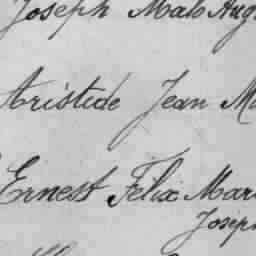 Joseph Malo Aug
Aristide Jean Ma
Ernest Félix Mari
Joseph